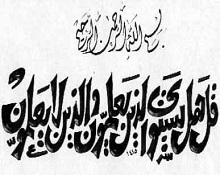 بسم الله الرحمن الرحيم
قل هل يستوي الذين يعلمون والذين لا يعلمون